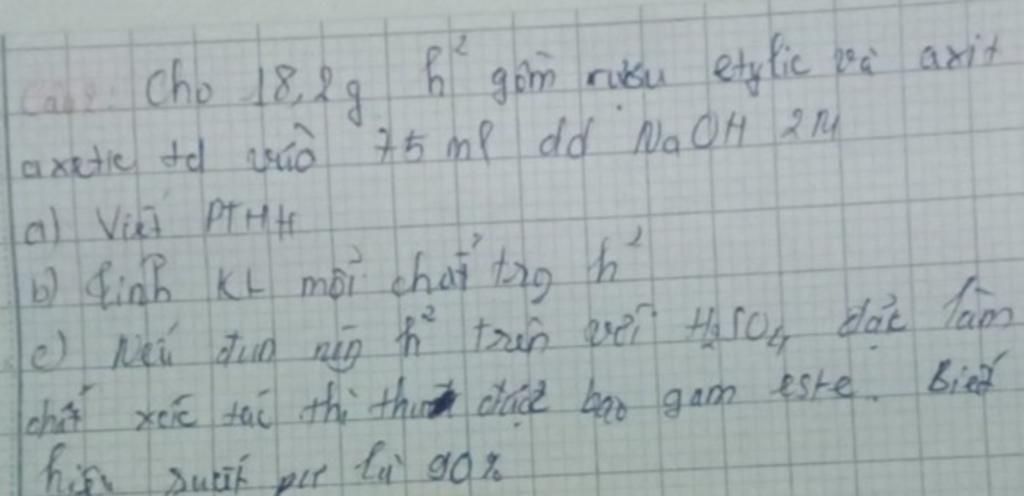 Câu 2: Cho 18,2g h² gồm rượu etylic và axit
axetic td vào 75 ml dd NaOH 2M
a) Viết PTHH
b) Tính KL mỗi chất trg h²
c) Nếu đun nóng h² trên với H₂SO₄ đặc làm
chất xúc tác thì thu được bao gam este. Biết
hiệu suất pư là 90%